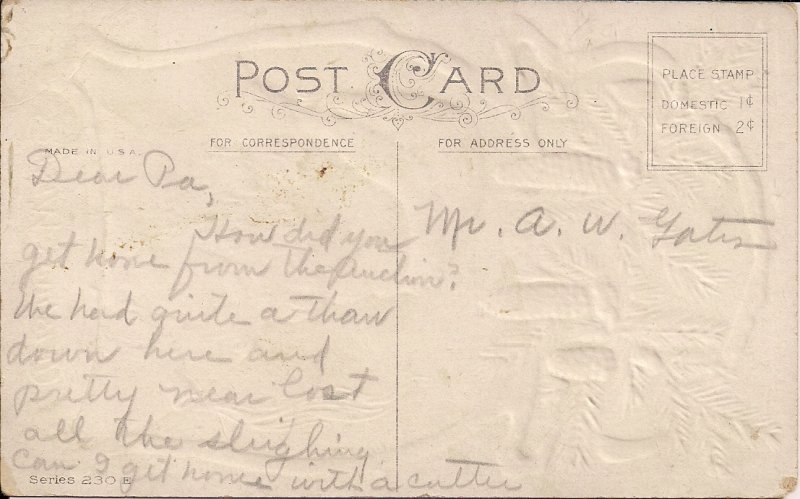 POST CARD
PLACE STAMP
DOMESTIC 1¢
FOREIGN 2¢
FOR CORRESPONDENCE
FOR ADDRESS ONLY
MADE IN U.S.A.
Dear Pa,
How did you
get home from the Auction?
We had quite a thaw
down here and
pretty near lost
all the sleighing
Can I get home with a cutter
Mr. A. W. Yates
Series 230 E